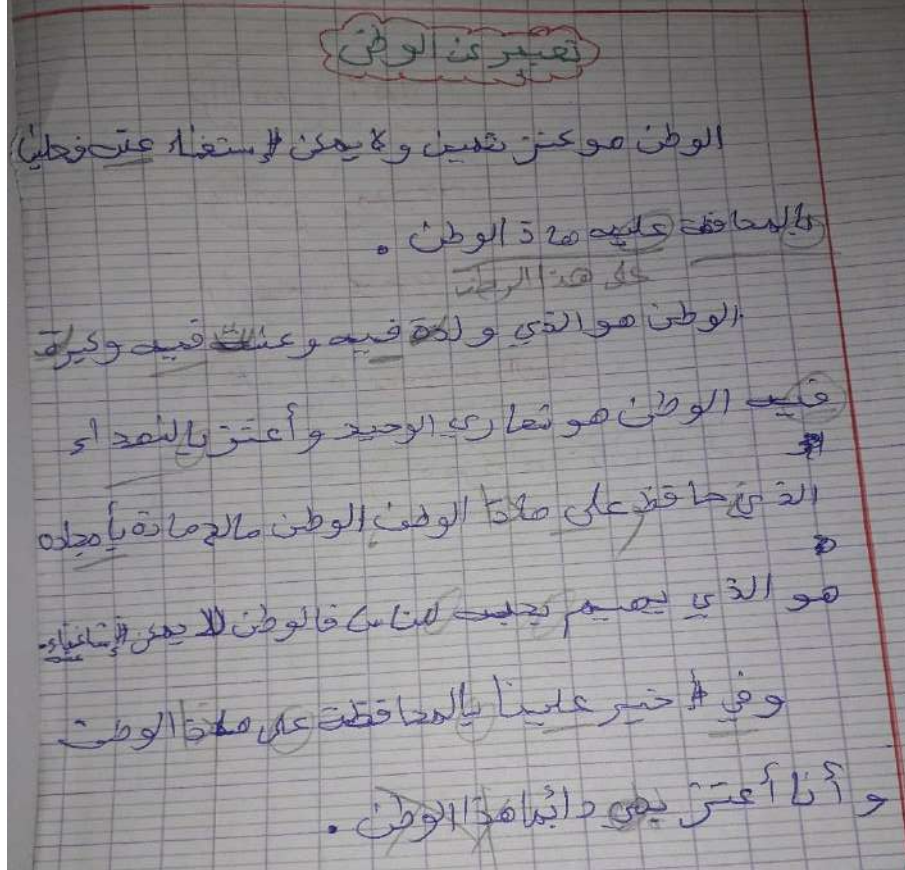 تعبير عن الوطن
الوطن هو كنز ثمين ولا يمكن إستغناء عنه فعلينا
بالمحافظة عليه هاذ الوطن .
على هذا الوطن
الوطن هو الذي ولدة فيه وعشت فيه وكبرة
فيه الوطن هو شعاري الوحيد وأعتز بالشهداء
الذي حافظ على هاذا الوطن الوطن بأمجاده
هو الذي للناس فالوطن لا يمكن
وفي أخير علينا بالمحافظة على هاذا الوطن
و أنا أعتز دائما هذا الوطن .